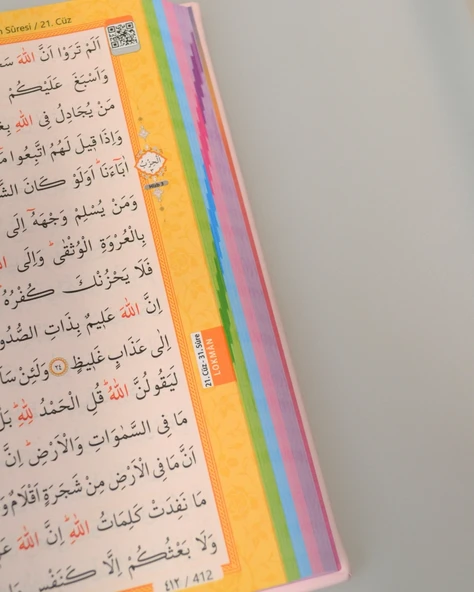 n Sûresi / 21. Cüz
اَلَمْ تَرَوْا اَنَّ اللّٰهَ
وَاَسْبَغَ عَلَيْكُمْ
مَنْ يُجَادِلُ فِى اللّٰهِ
وَاِذَا قِيلَ لَهُمُ اتَّبِعُوا
اٰبَٓاءَنَاۜ اَوَلَوْ كَانَ
وَمَنْ يُسْلِمْ وَجْهَهُٓ اِلَى
بِالْعُرْوَةِ الْوُثْقٰىۜ وَاِلَى
فَلَا يَحْزُنْكَ كُفْرُهُ
اِنَّ اللّٰهَ عَلِيمٌ بِذَاتِ الصُّدُو
اِلٰى عَذَابٍ غَلِيظٍ ٢٤ وَلَئِنْ
لَيَقُولُنَّ اللّٰهُۜ قُلِ الْحَمْدُ لِلّٰهِۜ بَلْ
مَا فِى السَّمٰوَاتِ وَالْاَرْضِۜ اِنَّ
اَنَّ مَا فِى الْاَرْضِ مِنْ شَجَرَةٍ اَقْلَامٌ وَ
مَا نَفِدَتْ كَلِمَاتُ اللّٰهِۜ اِنَّ اللّٰهَ
وَلَا بَعْثُكُمْ اِلَّا كَنَفْسٍ
٤١٢ / 412
الحزب
21. Cüz - 31. Sûre
LOKMAN